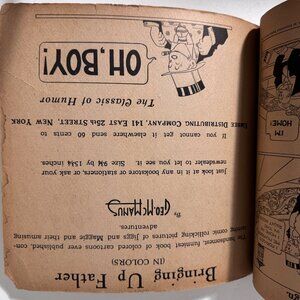 Bringing Up Father
(IN COLORS)
The handsomest, funniest book of colored cartoons ever published, comprising
comic rollicking pictures of Jiggs and Maggie and their amusing
adventures.
By
GEO. McMANUS
Just look for it in any bookstore or stationers, or ask your
newsdealer to let you see it. Size 9¾ by 13¾ inches.
If you cannot get it elsewhere send 60 cents to
EMBEE DISTRIBUTING COMPANY, 141 EAST 25th STREET, NEW YORK
The Classic of Humor
OH, BOY!
I'M HOME!